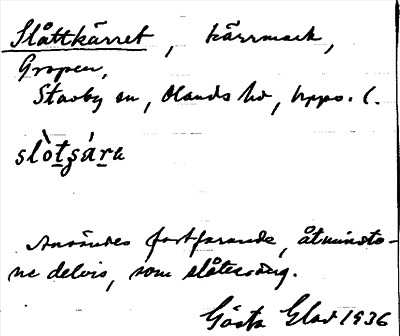 Slåttkärret, kärrmark,
Gropen,
Stavby sn, Olands hd, Upps. l.
slòtʂár
Användes fortfarande, åtminsto-
ne delvis, som slåtteräng.
Gösta Glad 1936